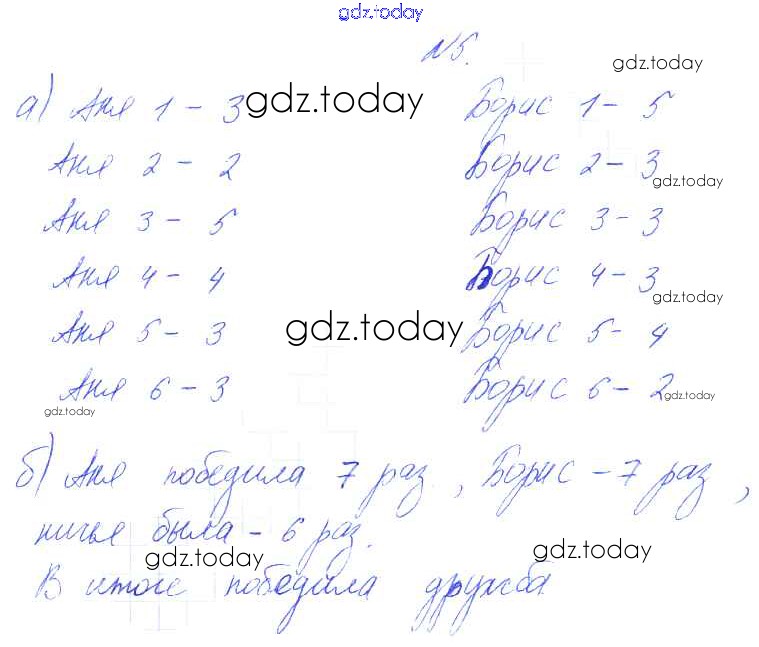 gdz.today
№5. gdz.today
а) Аня 1 - 3 gdz.today Борис 1 - 5
Аня 2 - 2 Борис 2 - 3 gdz.today
Аня 3 - 5 Борис 3 - 3
Аня 4 - 4 Борис 4 - 3 gdz.today
Аня 5 - 3 gdz.today Борис 5 - 4
Аня 6 - 3 Борис 6 - 2 gdz.today
gdz.today
б) Аня победила 7 раз, Борис - 7 раз,
ничья была - 6 раз.
gdz.today gdz.today
В итоге победила дружба